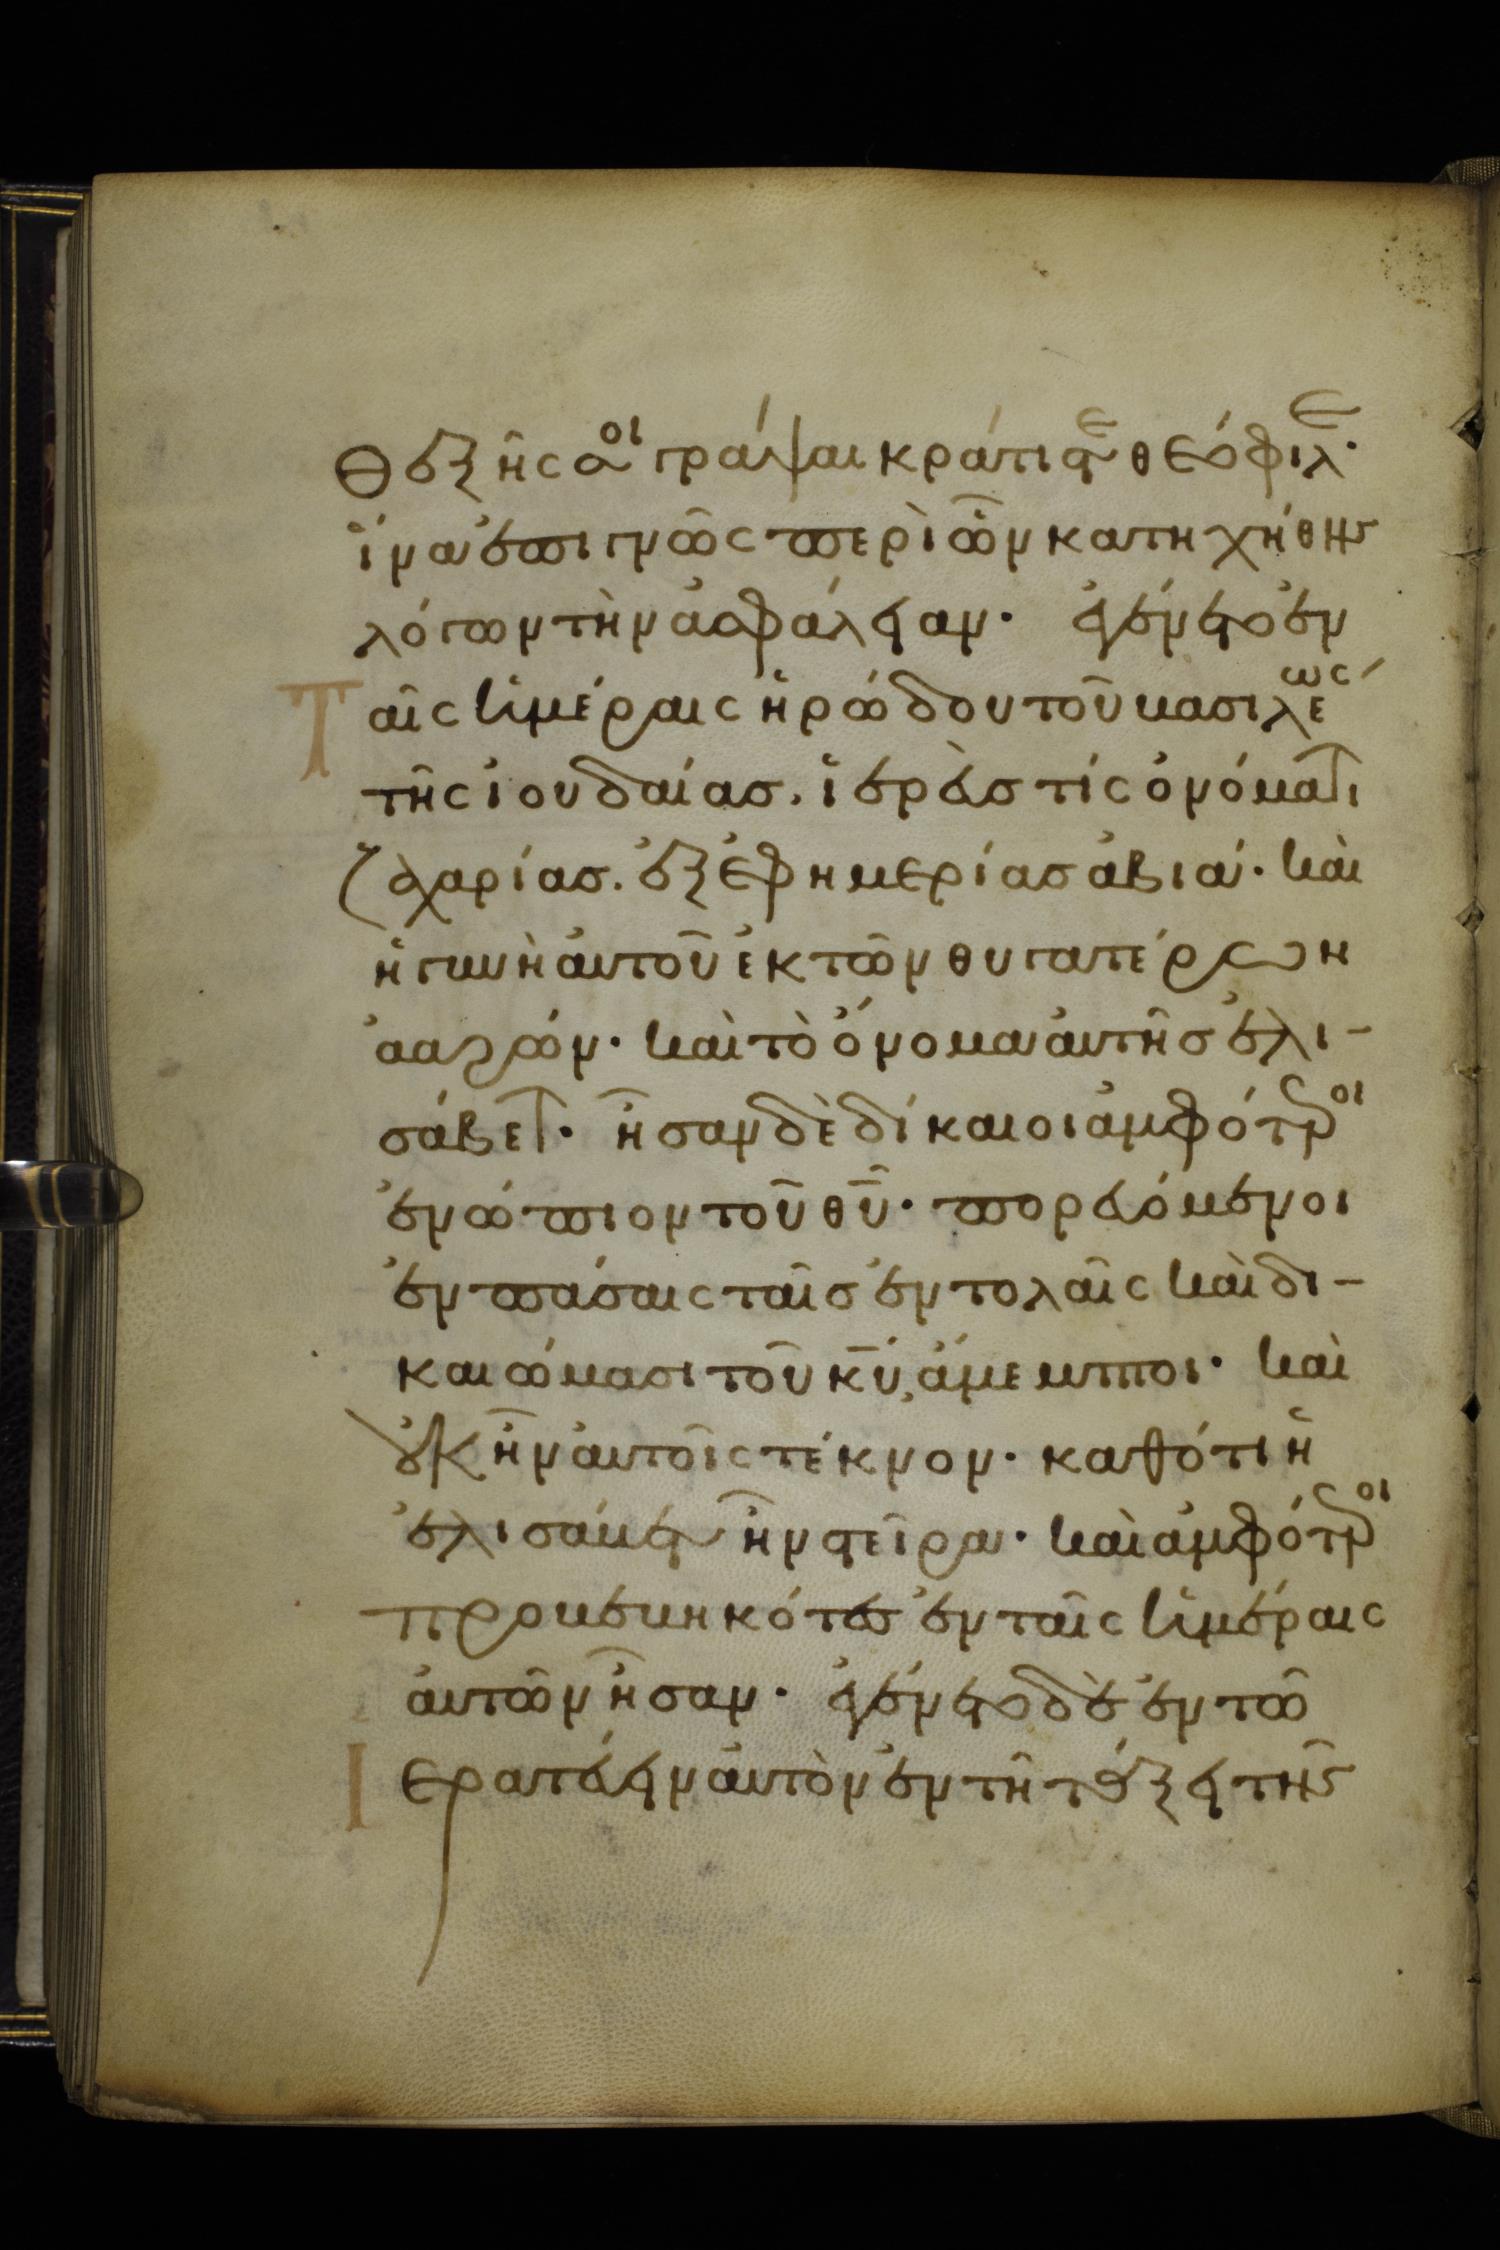 θεξῆς σοι γράψαι κράτιστε θεόφιλε·
ἵνα ἐπιγνῶς περὶ ὧν κατηχήθης
λόγων τὴν ἀσφάλειαν· ἐγένετο ἐν
Ταῖς ἡμέραις ἡρώδου τοῦ βασιλέως
τῆς ἰουδαίας. ἱερεύς τίς ὀνόματι
ζαχαρίας. ἐξ ἐφημερίας ἀβιά· καὶ
ἡ γυνὴ ἀυτοῦ ἐκ τῶν θυγατέρων
ἀαρών· καὶ τὸ ὄνομα ἀυτῆς ἐλι-
σάβετ· ἦσαν δὲ δίκαιοι ἀμφότεροι
ἐνώπιον τοῦ θῦ· πορευόμενοι
ἐν πάσαις ταῖς ἐντολαῖς καὶ δι-
καιώμασι τοῦ κύ, ἄμεμπτοι· καὶ
οὐκ ἦν ἀυτοῖς τέκνον· καθότι ἡ
ἐλισάβετ ἦν στεῖρα· καὶ ἀμφότεροι
προβεβηκότες ἐν ταῖς ἡμέραις
ἀυτῶν ἦσαν· ἐγένετο δὲ ἐν τῶ
Ἱερατεύειν ἀυτὸν ἐν τῆ τάξει τῆς